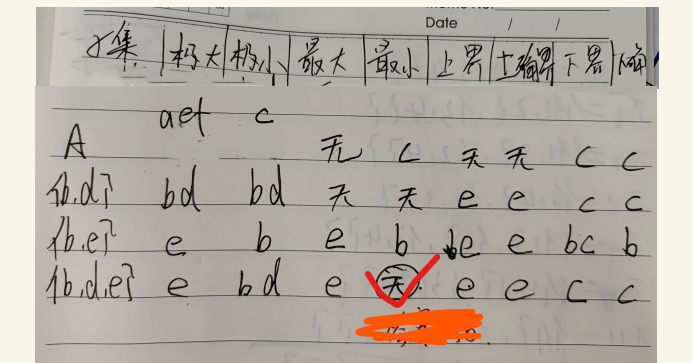 Date / /
子集 极大 极小 最大 最小 上界 上确界 下界 下确
aef c
A 无 c 无 无 c c
{b,d} bd bd 无 无 e e c c
{b,e} e b e b be e bc b
{b,d,e} e bd e 无 e e c c